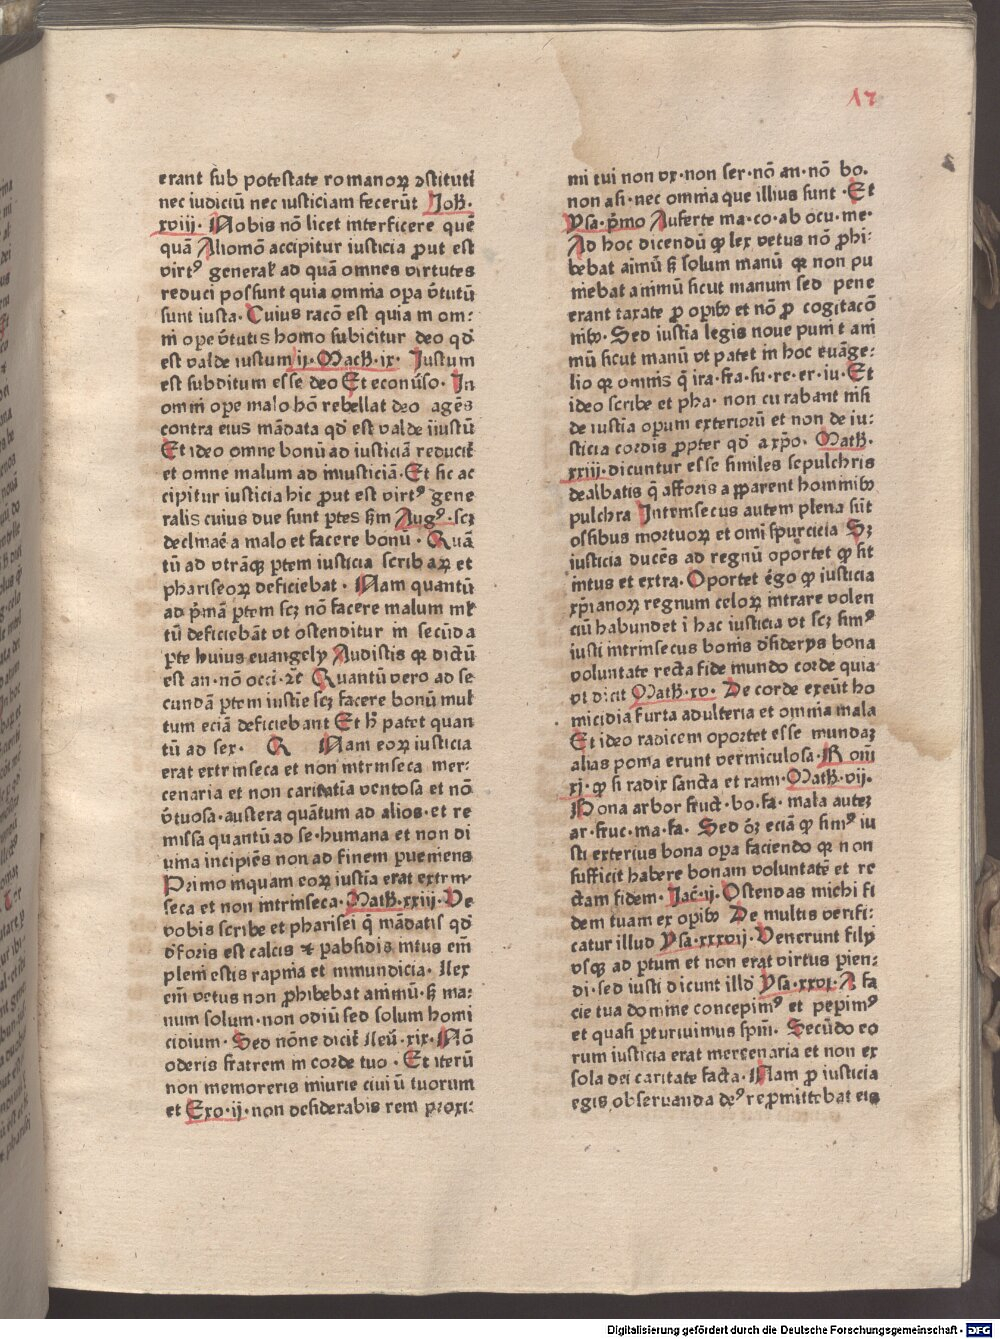 17
erant sub potestate romanoꝝ ↄstituti
nec iudiciū nec iusticiam fecerūt Joh̄.
xviij. Nobis nō licet interficere quē
quā Aliomō accipitur iusticia ꝓut est
virtꝰ general̕ ad quā omnes virtutes
reduci possunt quia omnia oꝑa v̄tutū
sunt iusta. Cuius racō est quia in om:
ni oꝑe v̄tutis homo subicitur deo qd̕
est valde iustum ij. Mach̄. ix. Iustum
est subditum esse deo Et econūso. In
omni oꝑe malo hō rebellat deo agēs
contra eius mādata qd̕ est valde iiustū
Et ideo omne bonū ad iusticiā reducit̕
et omne malum ad iniusticiā. Et sic ac
cipitur iusticia hic ꝓut est virtꝰ gene
ralis cuius due sunt ꝑtes scd̕m Augꝰ. scꝫ
declinaēe a malo et facere bonū. Quā
tū ad vtrāqꝫ ꝑtem iusticia scribaꝝ et
phariseoꝝ deficiebat. Nam quantū
ad p̄mā ꝑtem scꝫ nō facere malum ml̕
tū deficiebāt vt ostenditur in secūda
ꝑte huius euangely Audistis qꝛ dictū
est an. nō occi. ⁊c̄ Quantū vero ad se
cundā ꝑtem iustie scꝫ facere bonū mul̕
tum eciā deficiebant Et h̄ patet quan
tū ad sex. Q Nam eoꝝ iusticia
erat extrinseca et non intrinseca mer:
cenaria et non caritatia ventosa et nō
v̄tuosa. austera quātum ad alios. et re
missa quantū ad se. humana et non di
uina incipiēs non ad finem ꝑueniens
Primo inquam eoꝝ iustīa erat extrin-
seca et non intrinseca. Math̄. xxiij. Ve
vobis scribe et pharisei q̄ mādatis qd̕
d̕foris est calcis ⁊ ꝑabsidis intus em̄
pleni estis rapina et inmundicia. Lex
em̄ vetus non ꝓhibebat animū. sꝫ ma:
num solum. non odiū sed solum homi
cidium. Sed nōne dicit̕ Leu̅. xix. Nō
oderis fratrem in corde tuo. Et iterū
non memoreris iniurie ciui ū tuorum
et Exo. ij. non desiderabis rem proxi:
mi tui non vx. non ser. nō an. nō bo.
non asi. nec omnia que illius sunt. Et
Ysa. p̄mo Auferte ma. co. ab ocu. me.
Ad hoc dicendū ꝙ lex vetus nō ꝓhi:
bebat aimū sꝫ solum manū qꝛ non pu
niebat animū sicut manum sed pene
erant taxate ꝓ oꝑibꝫ et nō ꝓ cogitacō
nibꝫ. Sed iustīa legis noue punit ani
mū sicut manū vt patet in hoc euāge:
lio qꝛ omnis q̄ ira. fra. su. re. er. iu. Et
ideo scribe et pha. non curabant nisi
de iustīa oꝑum exteriorū et non de iu:
sticia cordis ꝓpter qd̕ a xp̄o. Math̄.
xxiij. dicuntur esse similes sepulchris
dealbatis q̄ afforis apparent hominibꝫ
pulchra Intrinsecus autem plena sūt
ossibus mortuoꝝ et omī spurcicia Sꝫ
iusticia ducēs ad regnū oportet ꝙ sit
intus et extra. Oportet ēgo ꝙ iusticia
xp̄ianoꝝ regnum celoꝝ intrare volen
ciū habundet i hac iusticia vt scꝫ simꝰ
iusti intrinsecus bonis d̕siderys bona
voluntate recta fide mundo corde quia
vt dicit Math̄. xv. De corde exeūt ho
micidia furta adulteria et omnia mala
Et ideo radicem oportet esse mundaꝫ
alias poma erunt vermiculosa. Rom̄
xj. ꝙ si radix sancta et rami. Math̄. vij.
Bona arbor fruct. bo. fa. mala auteꝫ
ar. fruc. ma. fa. Sed oꝫ eciā ꝙ simꝰ iu
sti exterius bona oꝑa faciendo qꝛ non
sufficit habere bonam voluntatē et re
ctam fidem. Jac̄. ij. Ostendas michi fi
dem tuam ex oꝑibꝫ De multis verifi:
catur illud Ysa. xxxvij. Venerunt filij
vsqꝫ ad ꝑtum et non erat virtus ꝑien:
di. sed iusti dicunt illd̕ Ysa. xxvi. A fa
cie tua domine concepimꝰ et peꝑimꝰ
et quasi ꝑturiuimus spm̄. Secūdo eo
rum iusticia erat mercenaria et non ex
sola dei caritate facta. Nam ꝓ iusticia
egis obseruanda deꝰ reꝑmittebat eis
Digitalisierung gefördert durch die Deutsche Forschungsgemeinschaft - DFG